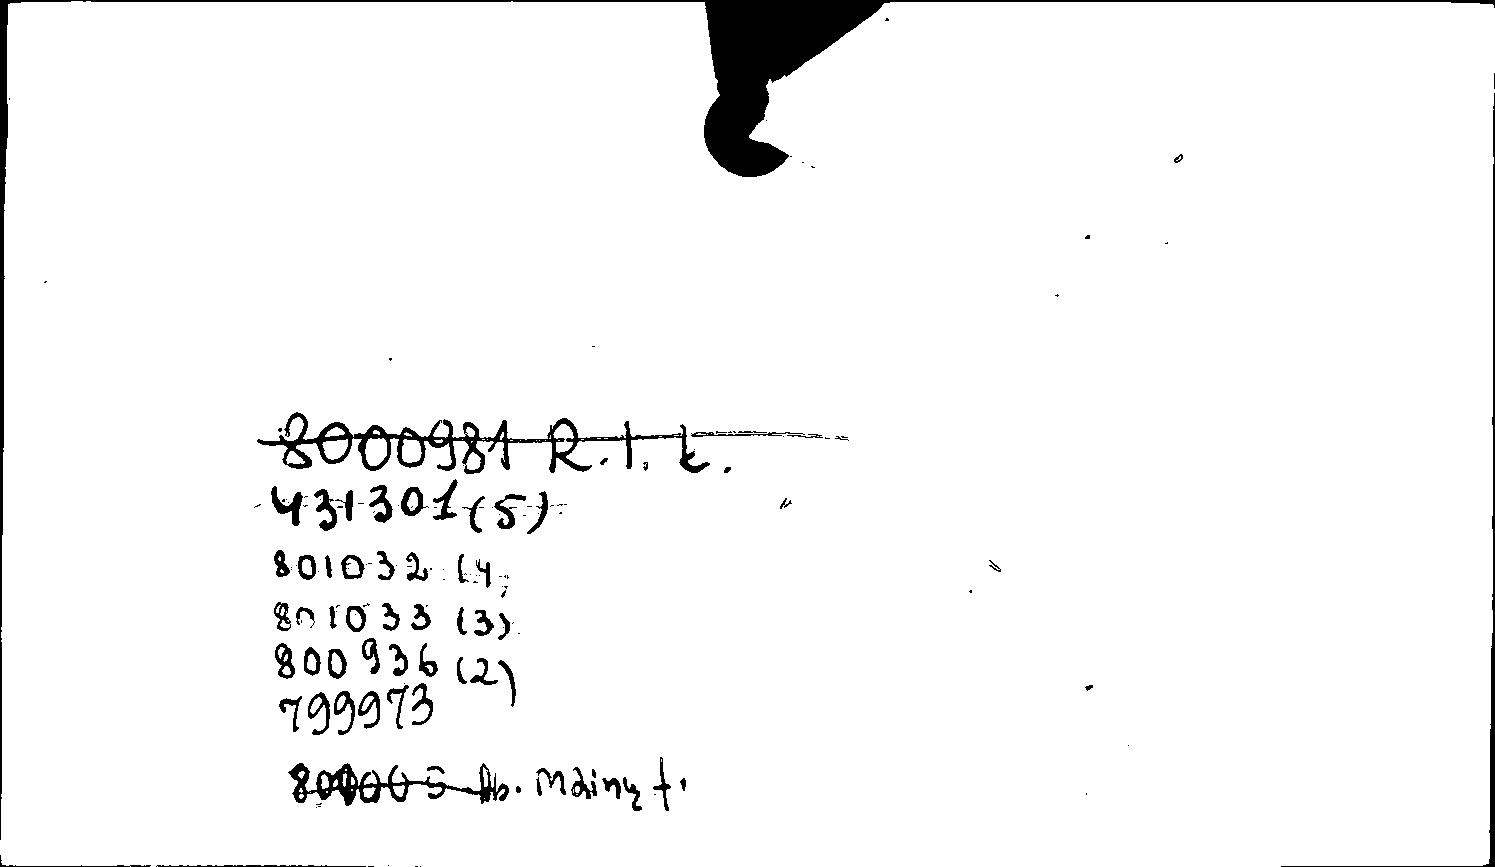 8000981 R.I.t.
431301 (5)
801032 (4)
801033 (3)
800936 (2)
799973
800005 Ab.